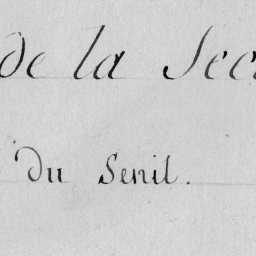 de la Sec
du Senil.